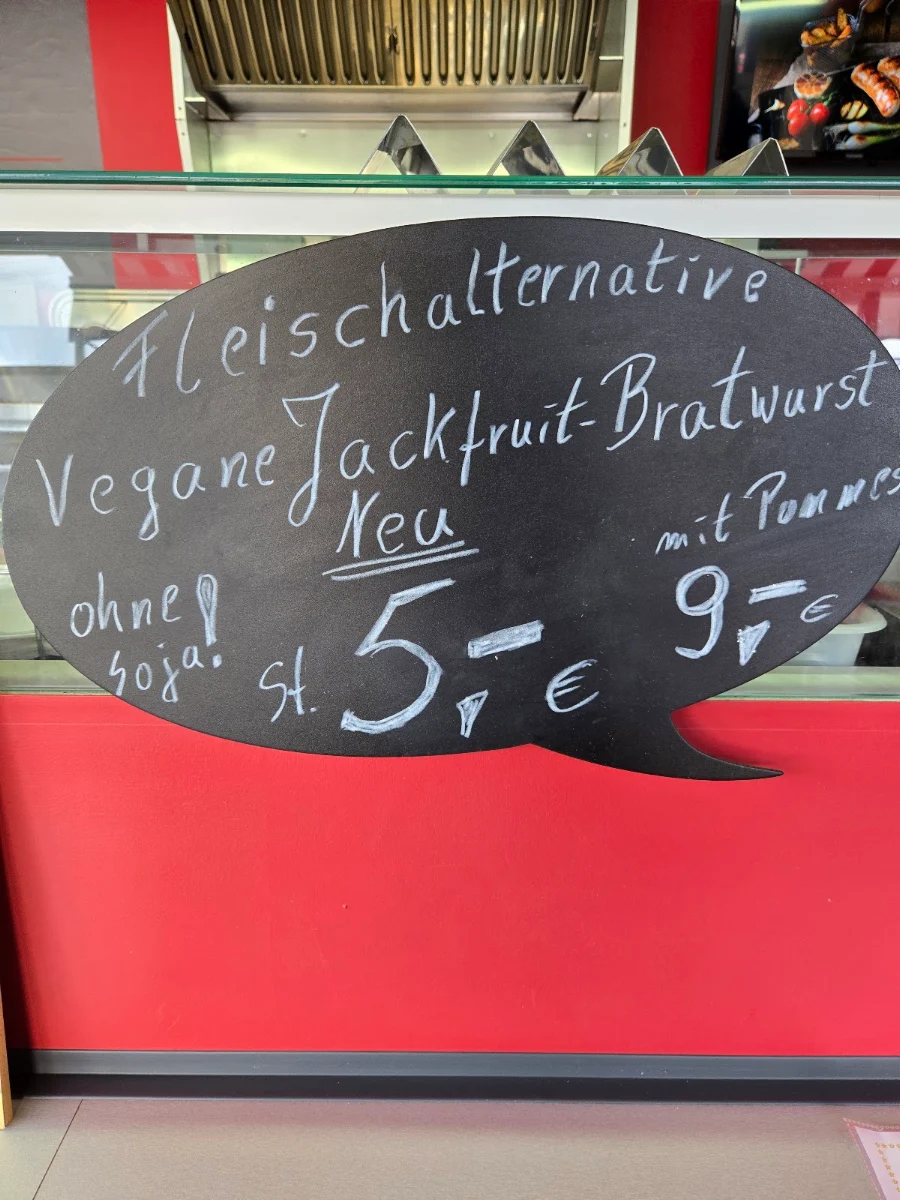 Fleischalternative
Vegane Jackfruit-Bratwurst
Neu
mit Pommes
ohne
soja!
St. 5,- €
9,- €